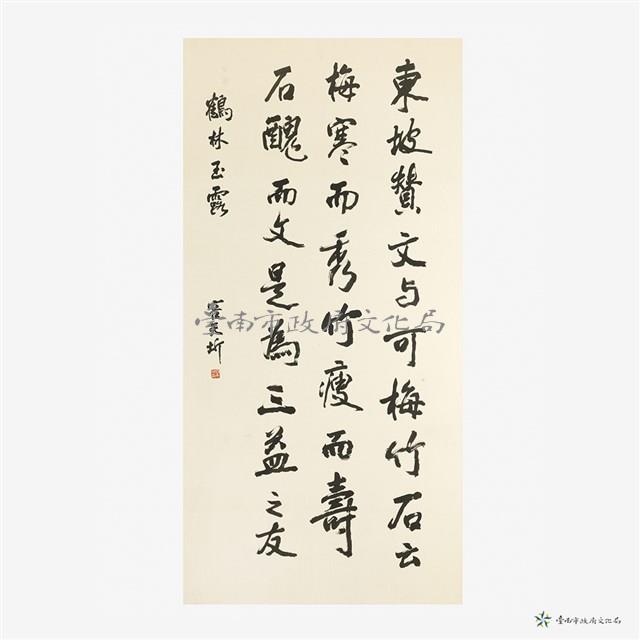 東坡贊文与可梅竹石云
梅寒而秀竹瘦而壽
石醜而文是為三益之友
鶴林玉露
臺南市政府文化局
臺南市政府文化局